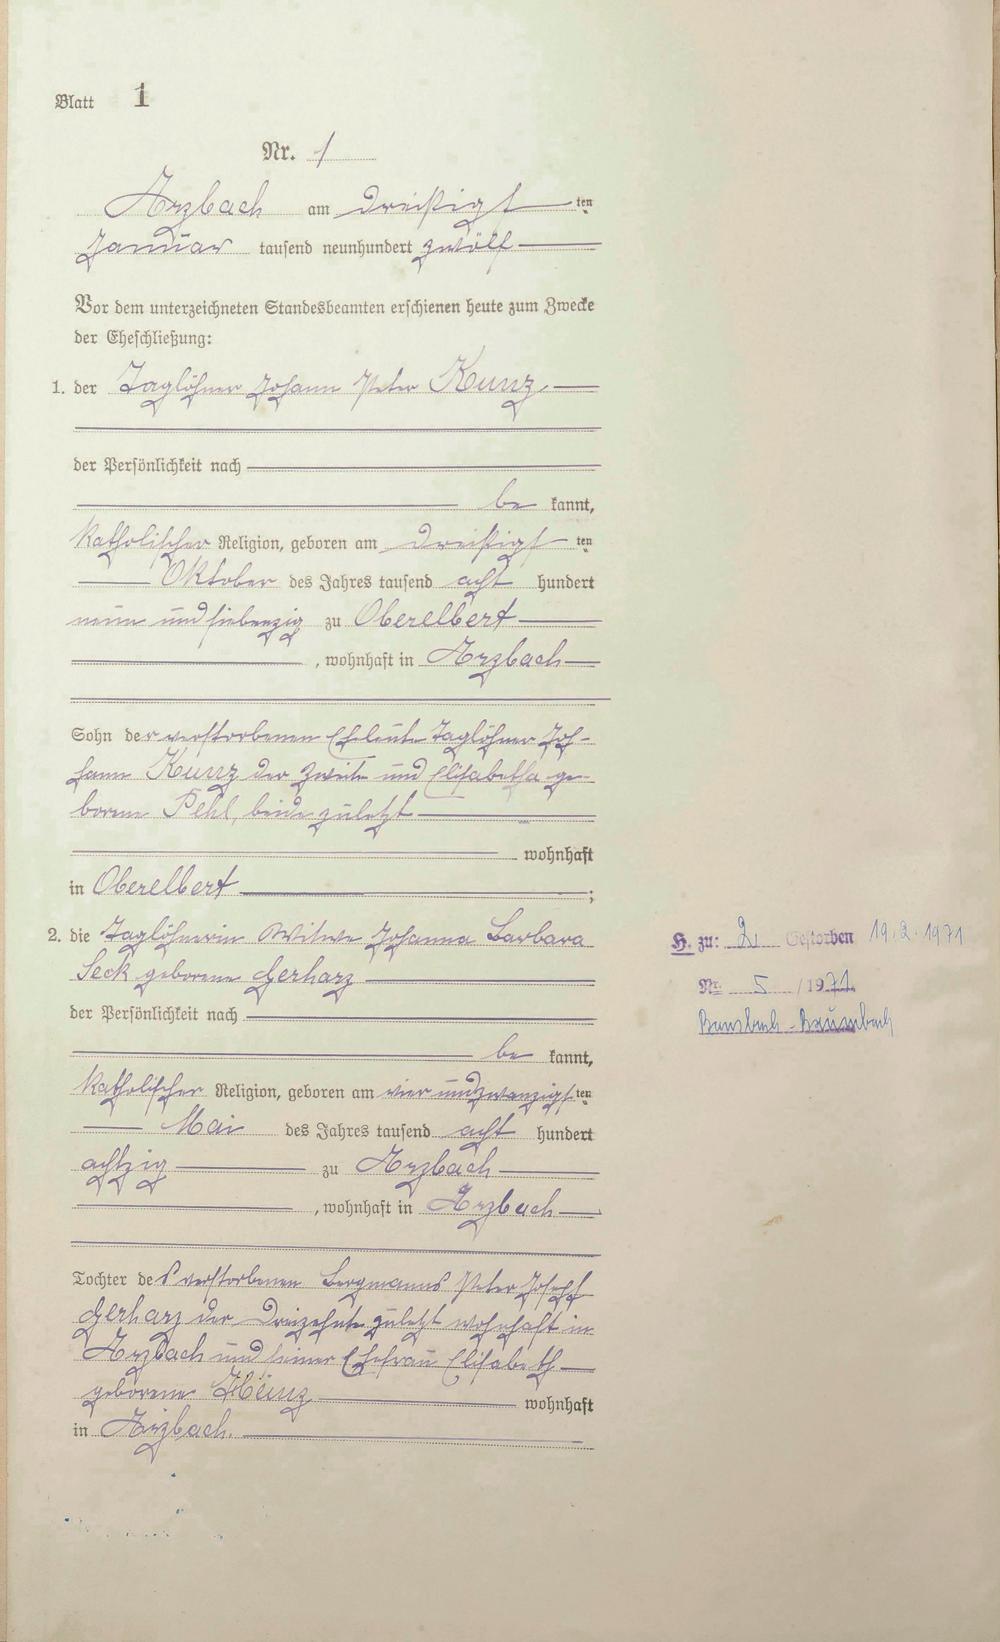 Blatt 1
Nr. 1
Arzbach am dreißigsten
Januar tausend neunhundert zwölf
Vor dem unterzeichneten Standesbeamten erschienen heute zum Zwecke
der Eheschließung:
1. der Taglöhner Johann Peter Kunz
der Persönlichkeit nach
be kannt,
katholischer Religion, geboren am dreißigsten
Oktober des Jahres tausend acht hundert
neun und siebenzig zu Oberelbert
, wohnhaft in Arzbach
Sohn der verstorbenen Eheleute Taglöhner Jo-
hann Kunz der Zweite und Elisabetha ge-
borene Pehl, beide zuletzt
wohnhaft
in Oberelbert ;
2. die Taglöhnerin Witwe Johanna Barbara
Seck geborene Gerharz
der Persönlichkeit nach
be kannt,
katholischer Religion, geboren am vier und zwanzigsten
Mai des Jahres tausend acht hundert
achtzig zu Arzbach
, wohnhaft in Arzbach
Tochter des verstorbenen Bergmanns Peter Joseph
Gerharz der Dreizehnte zuletzt wohnhaft in
Arzbach und seiner Ehefrau Elisabeth
geborene Heinz wohnhaft
in Arzbach.
H. zu: 2. Gestorben 19.2.1971
Nr. 5 / 1971
Ransbach-Baumbach